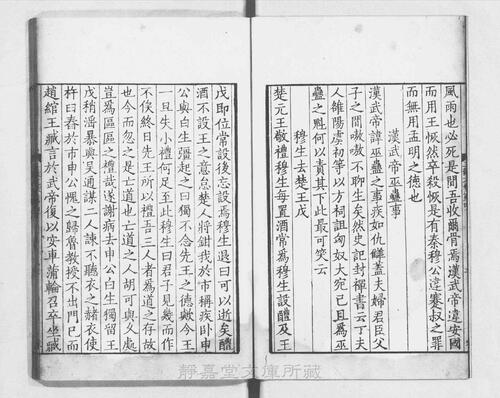 風雨也必死是間吾收爾骨焉漢武帝違安國
而用王恢然卒殺恢是有秦穆公違蹇叔之罪
而無用孟明之德也
漢武帝巫蠱事
漢武帝諱巫蠱之事疾如仇讎蓋夫婦君臣父
子之間嗷嗷不聊生矣然史記封禪書云丁夫
人雒陽虞初等以方祠詛匈奴大宛已且為巫
蠱之魁何以責其下此最可笑云
穆生去楚王戊
楚元王敬禮穆生每置酒常為穆生設醴及王
戊即位常設後忘設焉穆生退曰可以逝矣醴
酒不設王之意怠楚人將鉗我於市稱疾卧申
公與白生彊起之曰獨不念先王之德歟今王
一旦失小禮何足至此穆生曰君子見幾而作
不俟終日先王所以禮吾三人者為道之存故
也今而忽之是亡道也亡道之人胡可與久處
豈為區區之禮哉遂謝病去申公白生獨留王
戊稍淫暴與吳通謀二人諫不聽衣之赭衣使
杵臼舂於市申公愧之歸魯教授不出門已而
趙綰王臧言於武帝復以安車蒲輪召卒坐臧
靜嘉堂文庫所藏